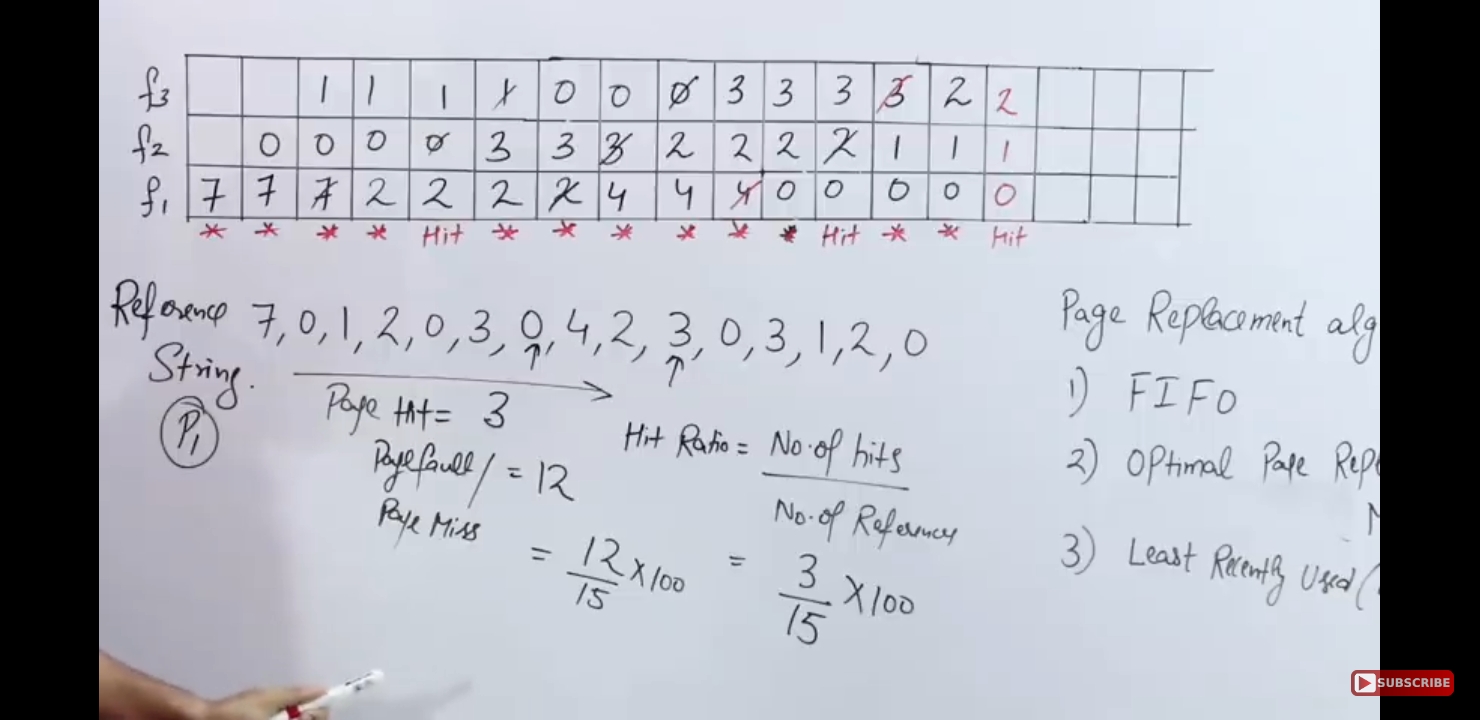 f3 1 1 1 1 0 0 0 3 3 3 3 2 2
f2 0 0 0 0 3 3 3 2 2 2 2 1 1 1
f1 7 7 7 2 2 2 2 4 4 4 0 0 0 0 0
* * * * Hit * * * * * * Hit * * Hit
Reference 7,0,1,2,0,3,0,4,2,3,0,3,1,2,0
String.
P1
Page Hit = 3
Page fault/ = 12
Page Miss
= 12/15 X100
Hit Ratio = No. of hits
No. of References
= 3/15 X100
Page Replacement alg
1) FIFO
2) Optimal Page Rep
3) Least Recently Used (
SUBSCRIBE